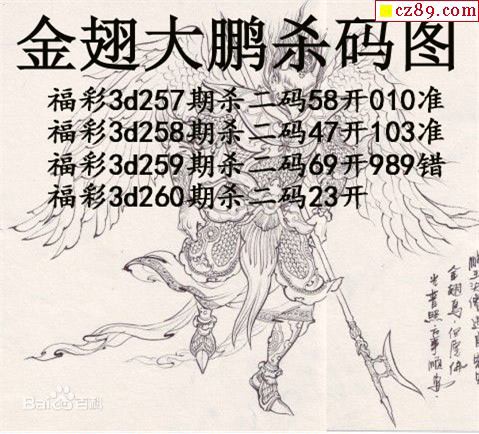 cz89.com
金翅大鹏杀码图
福彩3d257期杀二码58开010准
福彩3d258期杀二码47开103准
福彩3d259期杀二码69开989错
福彩3d260期杀二码23开
金翅鳥
Bai百科